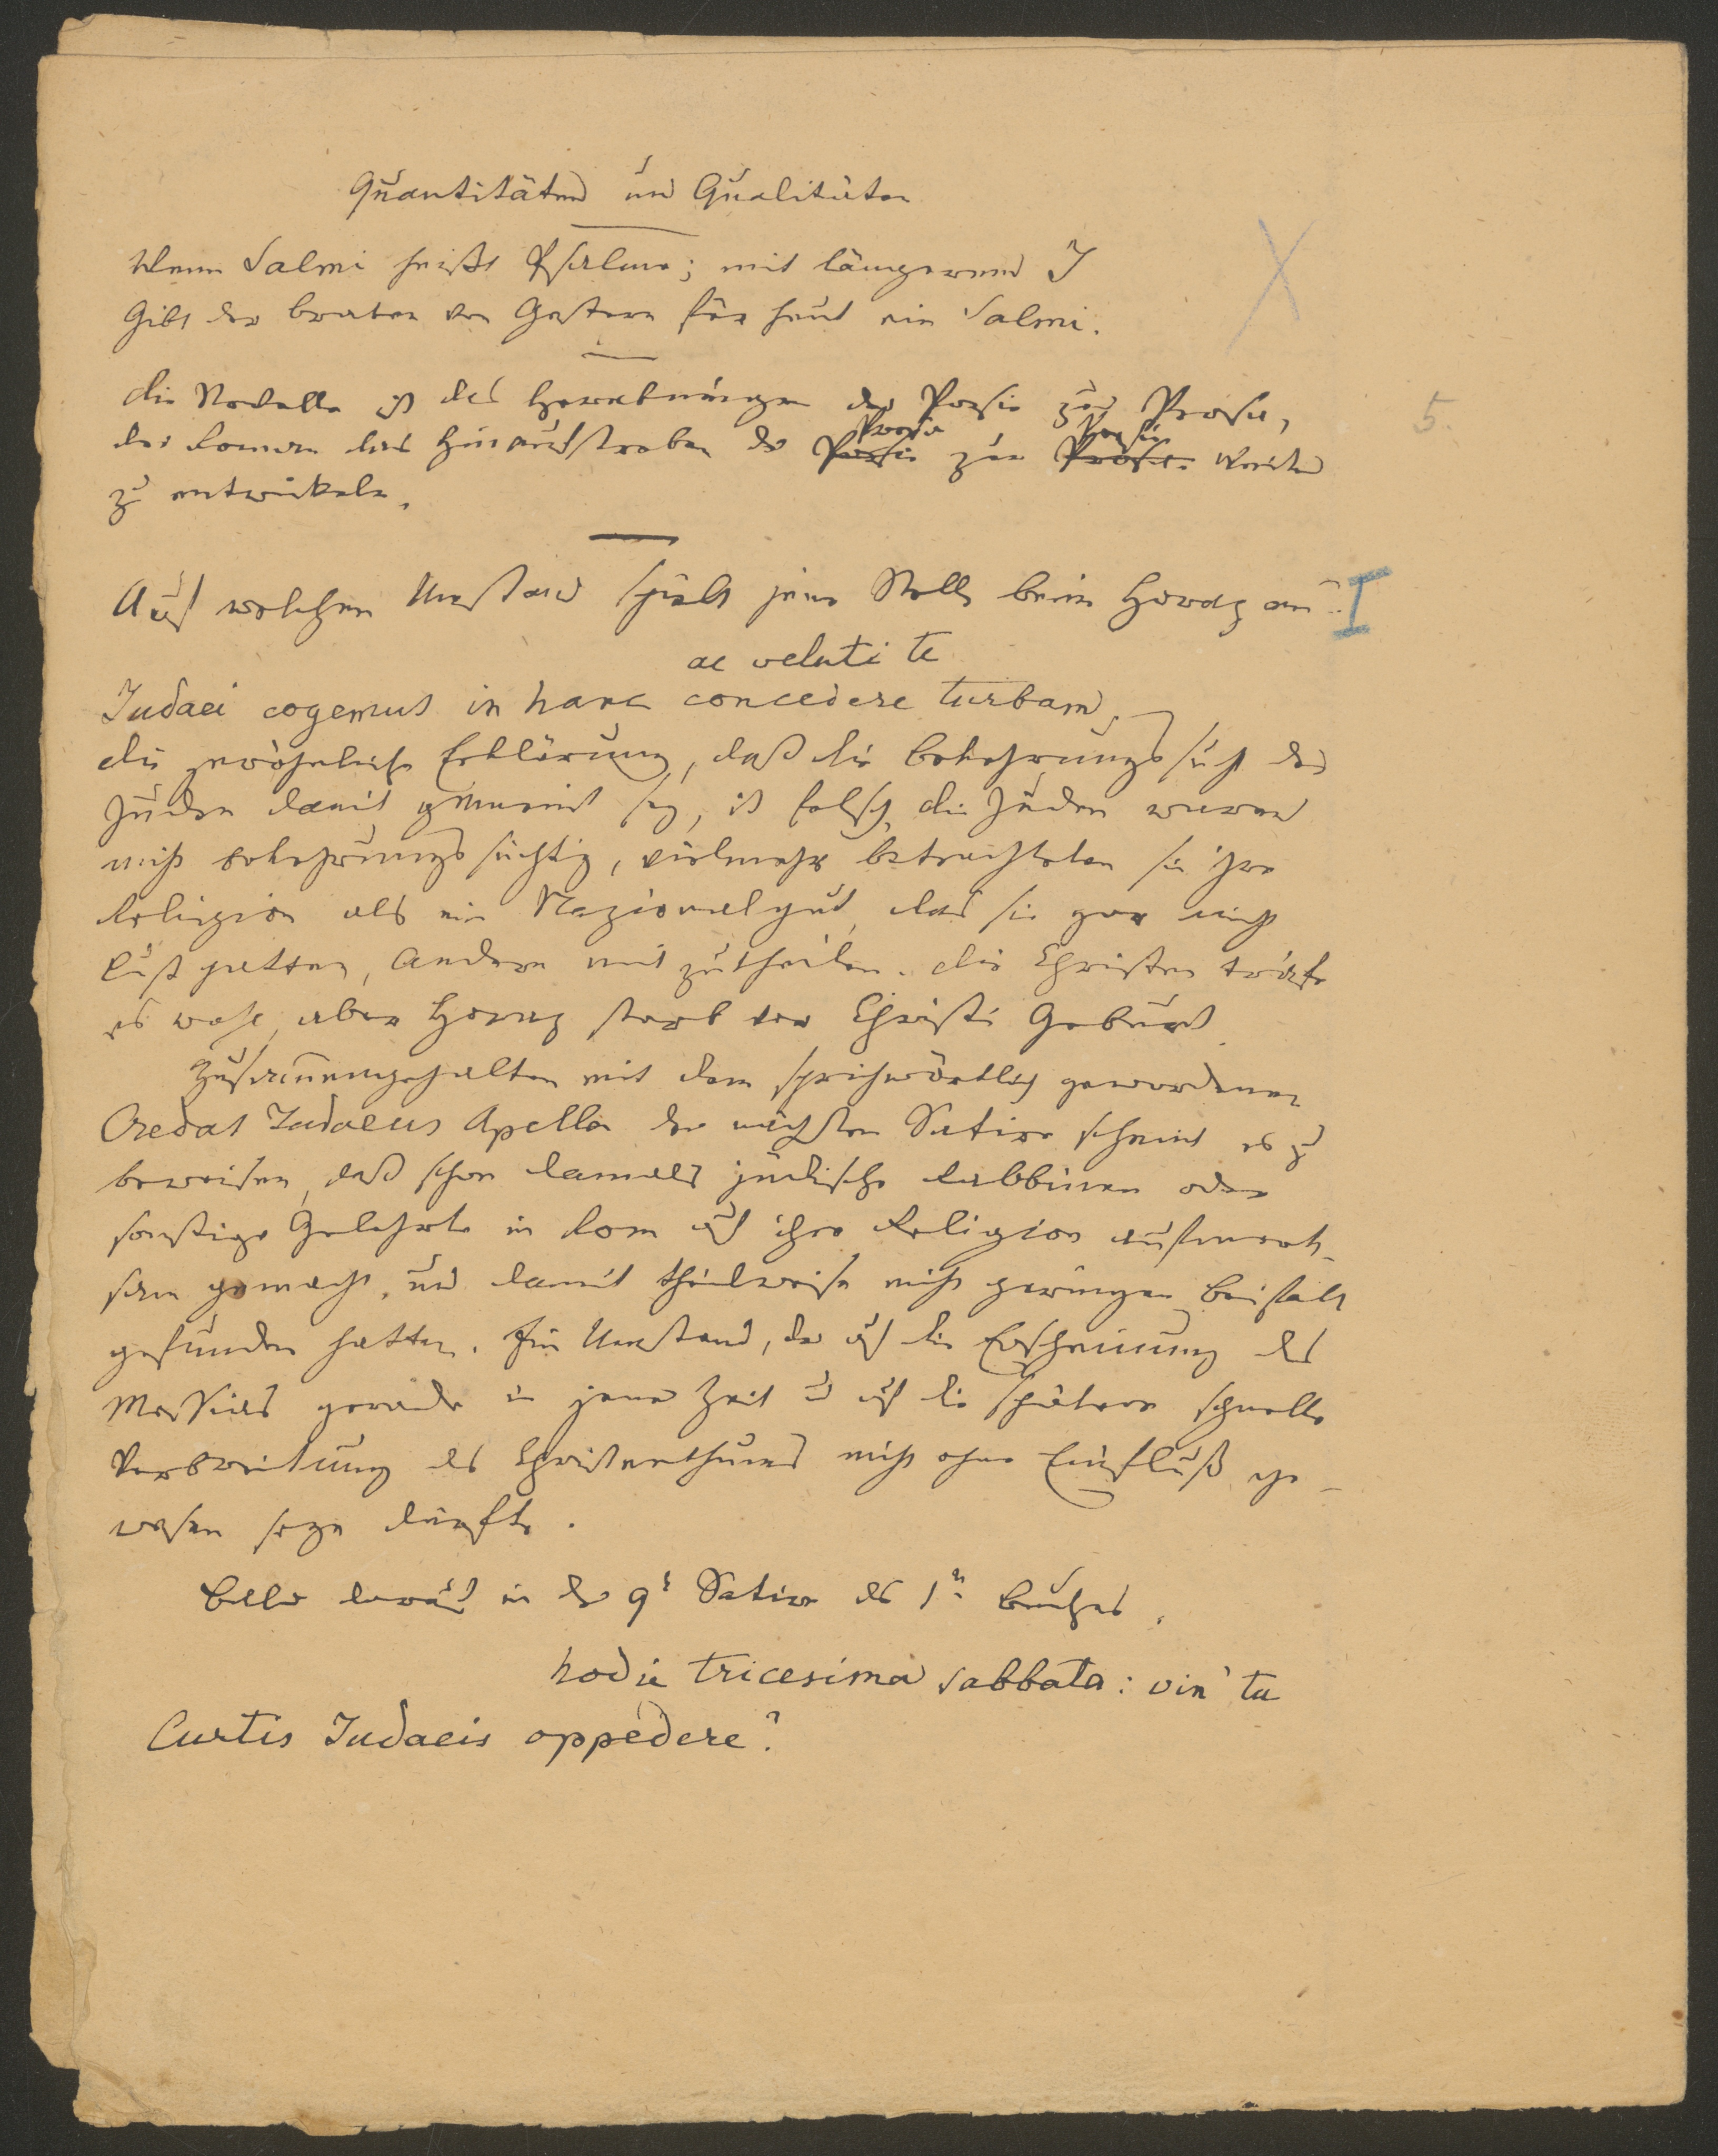 Quantitäten und Qualitäten
Wenn Salmi heißt Psalme; mit längerem I
Gibt der Braten von Gestern für heut ein Salmi.
Die Novelle ist das Herabneigen der Poesie zur Prosa,
der Roman das Hinaufstreben der Poesie Prosa zur Prosa Poesie. Weiter
zu entwickeln.
5.
Auf welchen Umstand spielt jene Stelle beim Horaz an?
I
ac veluti te
Judaei cogemus in hanc concedere turbam,
die gewöhnliche Erklärung, daß die Bekehrungssucht der
Juden damit gemeint sey, ist falsch, die Juden waren
nicht bekehrungssüchtig, vielmehr betrachteten sie ihre
Religion als ein Nazionalgut, das sie gar nicht
Lust hatten, Andern mitzutheilen. Die Christen träfe
es wohl, aber Horaz starb vor Christi Geburt.
Zusam̄engehalten mit dem sprichwörtlich gewordenen
Credat Judaeus Apella der nächsten Satire scheint es zu
beweisen, daß schon damals jüdische Rabbinen oder
sonstige Gelehrte in Rom auf ihre Religion aufmerk-
sam gemacht, und damit theilweise nicht geringen Beifall
gefunden hatten. Ein Umstand, der auf die Erscheinung des
Messias gerade in jener Zeit u auf die spätere schnelle
Verbreitung des Christenthums nicht ohne Einfluß ge-
wesen seyn dürfte.
darauf in der 9t Satire des 1n Buches.
hodie tricesima sabbata: vin' tu
Curtis Judaeis oppedere?